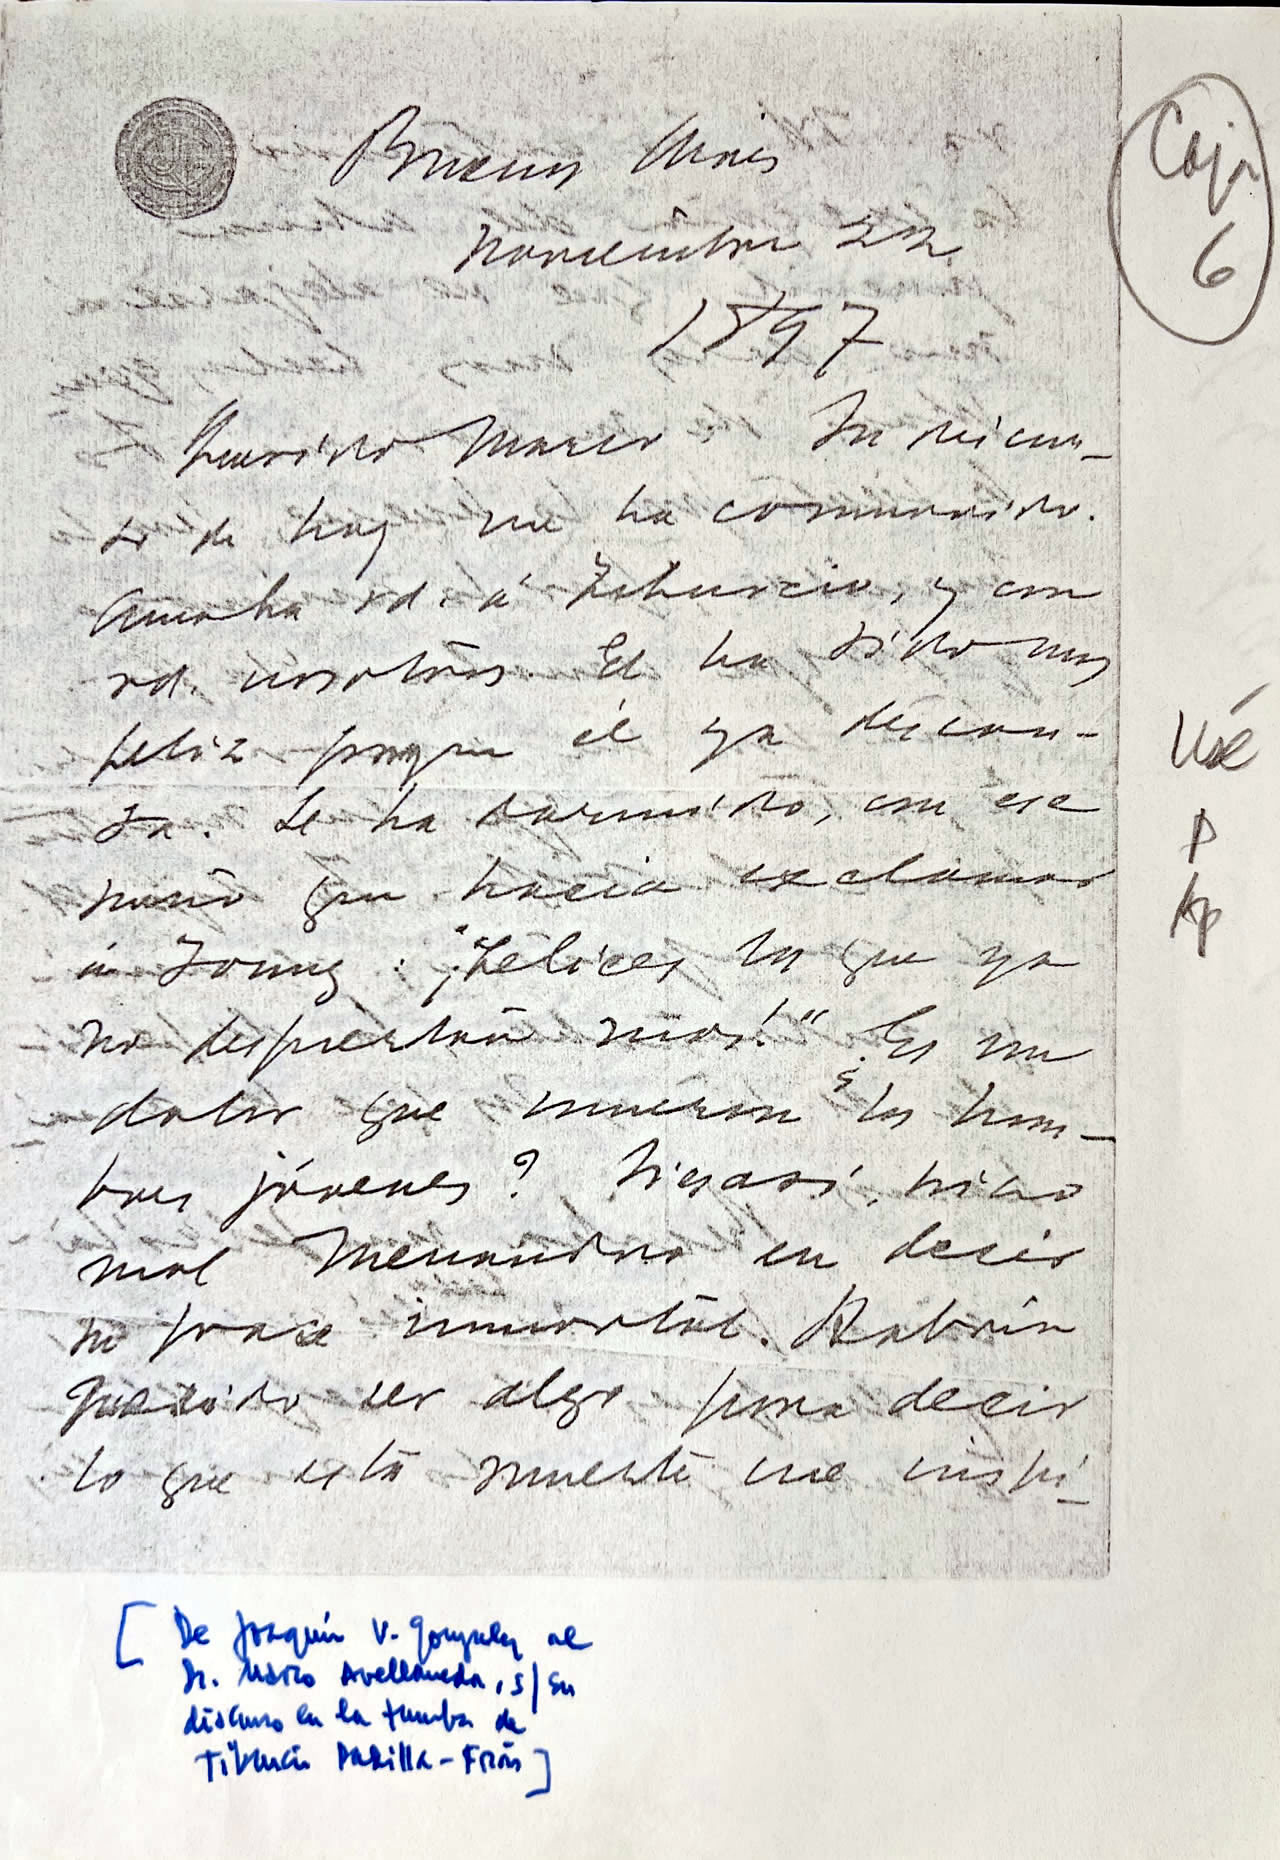 Buenos Aires
Noviembre 22.
1897
Querido Marco: Su discur-
so de hoy me ha conmovido.
Amaba vd. á Tiburcio, y con
vd. nosotros. El ha sido mas
feliz porque él ya descan-
sa. Se ha dormido, con ese
sueño que hacia exclamar
á Young: "¡Felices los que ya
no despiertan mas!" ¿Es un
dolor que mueran los hom-
bres jóvenes? hizo
mal Menandro en decir
su frase inmortal. Habria
querido ser algo para decir
lo que esta muerte me inspi-
Caja
6
Usé
P
[De Joaquín V. González al
Dr. Marco Avellaneda, s/ su
discurso en la tumba de
Tiburcio Padilla - Frías]